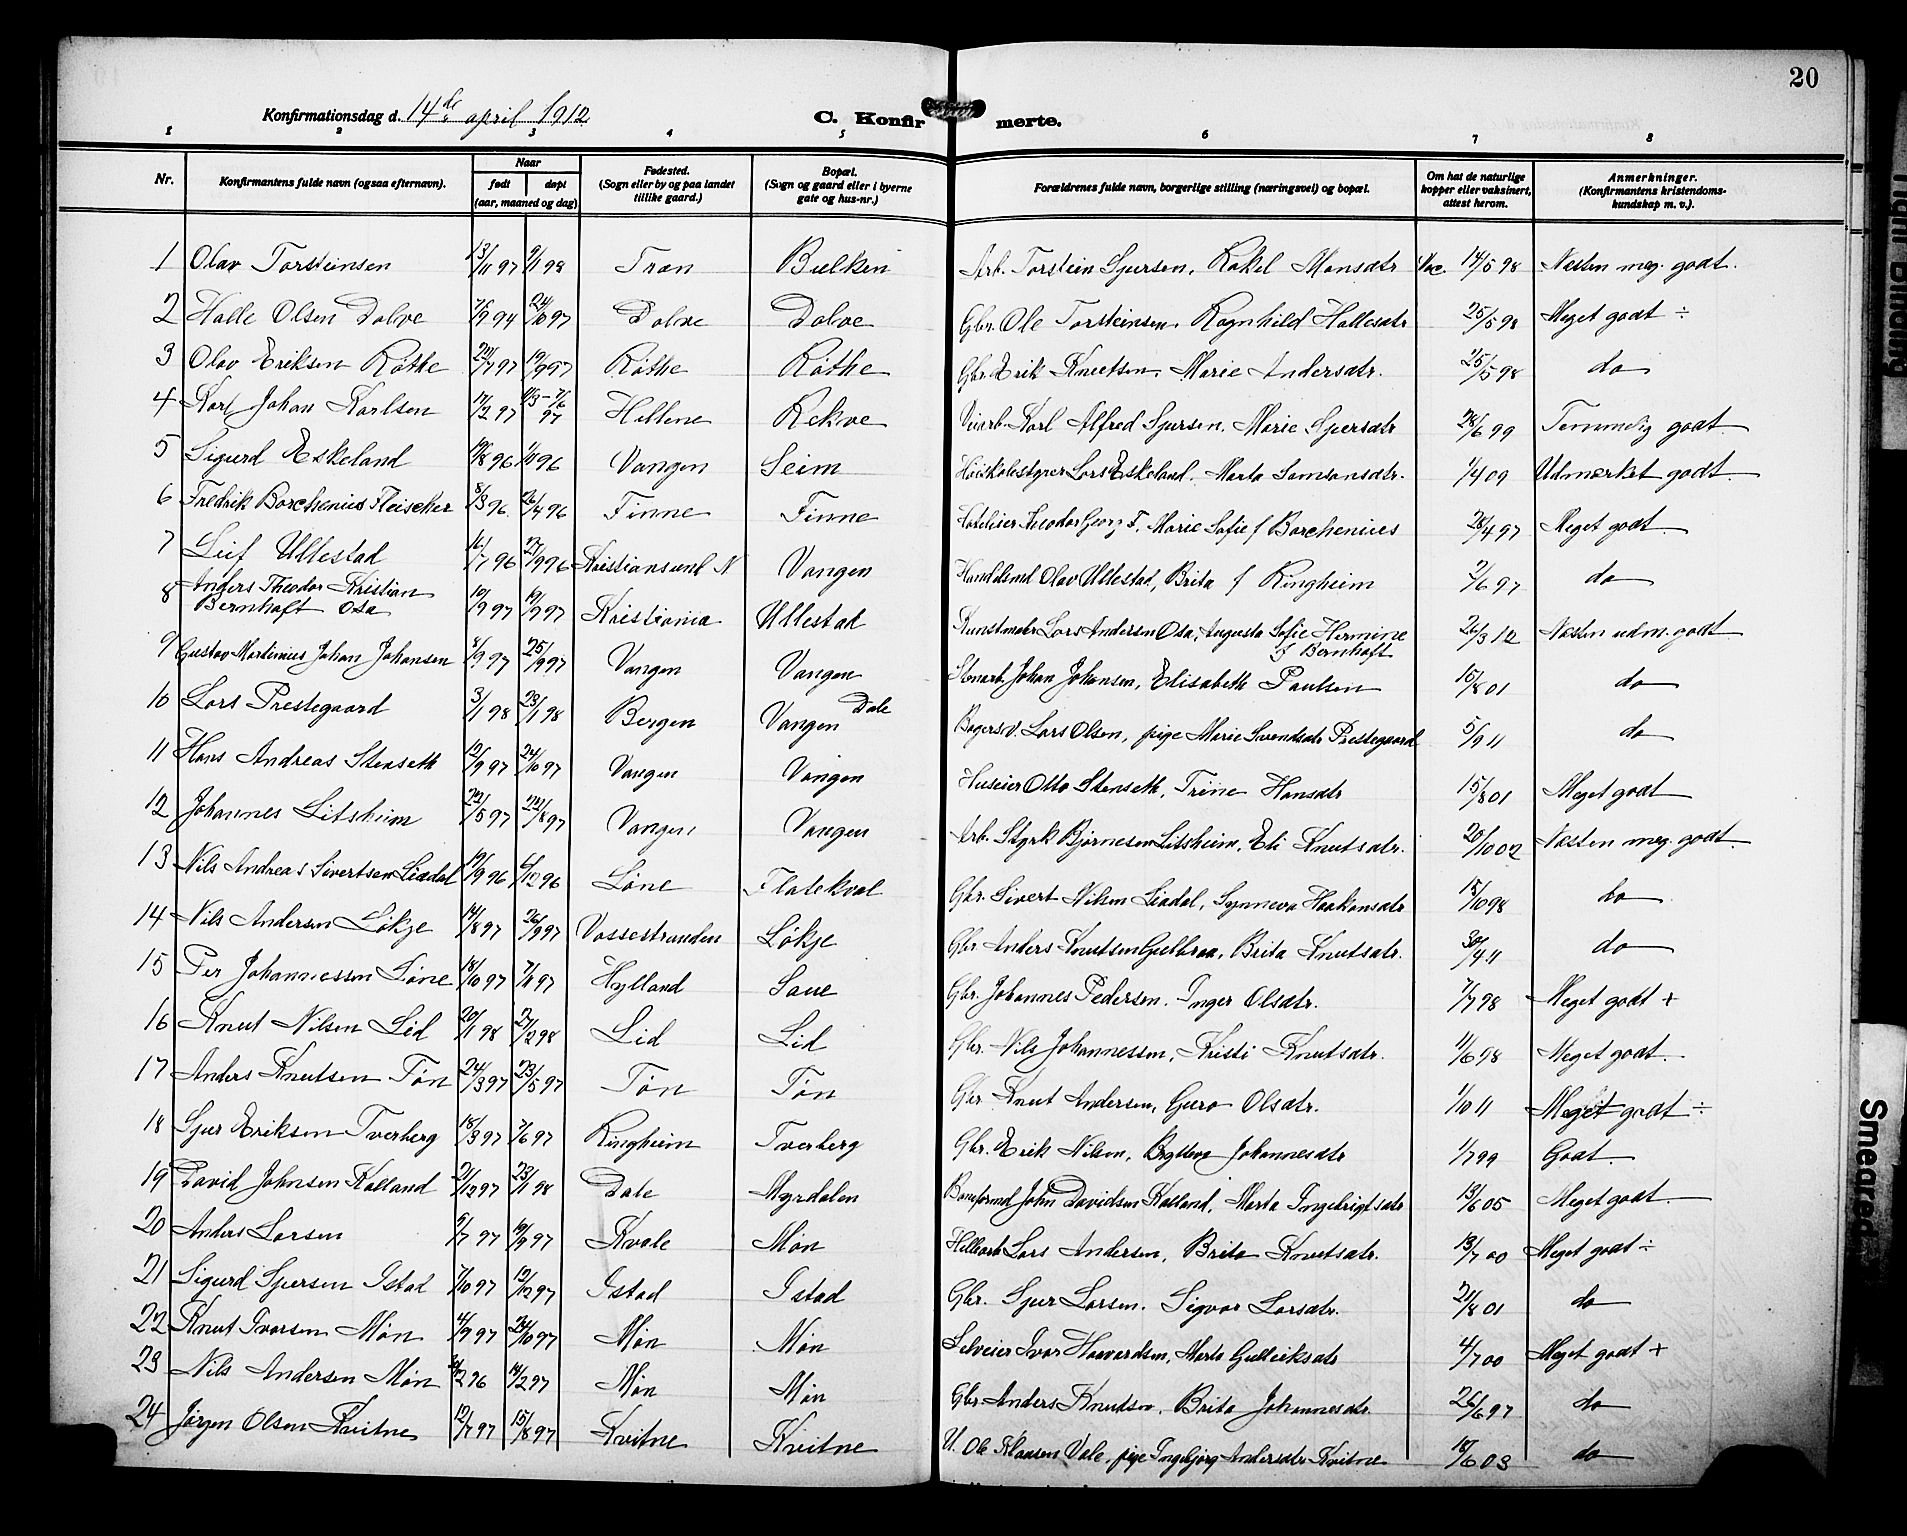 20
Konfirmationsdag d. 14de april 1912
C. Konfirmerte.
1 2 3 4 5 6 7 8
Nr. Konfirmantens fulde navn (ogsaa efternavn). Naar født døpt (aar, maaned og dag) Fødested. (Sogn eller by og paa landet tillike gaard.) Bopæl. (Sogn og gaard eller i byerne gate og hus-nr.) Forældrenes fulde navn, borgerlige stilling (næringsvei) og bopæl. Om hat de naturlige kopper eller vaksinert, attest herom. Anmerkninger. (Konfirmantens kristendoms-kundskap m. v.).
1 Olav Torsteinsen 13/11 97 9/1 98 Træn Bulken Arb. Torstein Sjursen, Rakel Monsdtr Vac. 14/5 98 Næsten meg. godt.
2 Halle Olsen Dolve 7/9 94 24/10 97 Dolve Dolve Gbr. Ole Torsteinsen, Ragnhild Hallesdtr 25/5 98 Meget godt ÷
3 Olav Eriksen Røthe 22/7 97 19/9 97 Røthe Røthe Gbr. Erik Knutsen, Marie Andersdtr. 25/5 98 do
4 Karl Johan Karlsen 17/2 97 Hellene Rekve Veiarb. Karl Alfred Sjursen, Marie Sjursdtr 28/6 99 Temmelig godt
5 Sigurd Eskeland 19/8 96 1/11 96 Vangen Seim Høiskolestyrer Lars Eskeland, Marta Samsonsdtr. 1/4 09 Udmerket godt
6 Fredrik Borchenius Fleischer 8/3 96 26/4 96 Finne Finne Hoteleier Theodor Georg F., Marie Sofie f Borchenius 28/4 97 Meget godt
7 Leif Ullestad 16/7 96 27/9 96 Kristiansund N Vangen Handelsmd Olav Ullestad, Brita f Ringheim 2/6 97 do
8 Anders Theodor Kristian Bernhoft Osa 10/2 97 19/9 97 Kristiania Ullestad Kunstmaler Lars Andersen Osa, Augusta Sofie Hermine f Bernhoft 26/3 12 Næsten udm. godt
9 Gustav Martinius Johan Johansen 8/9 97 25/9 97 Vangen Vangen Stenarb. Johan Johansen, Elisabeth Paulsen 15/8 01 do
10 Lars Prestegaard 3/1 98 23/1 98 Bergen Vangen Dale Bagersv. Lars Olsen, pige Marie Svendsdtr Prestegaard 5/9 11 do
11 Hans Andreas Stenseth 12/9 97 24/10 97 Vangen Vangen Huseier Otto Stenseth, Trine Hansdtr 15/8 01 Meget godt
12 Johannes Litsheim 22/5 97 22/8 97 Vangen Vangen Arb. Styrk Bjørnesen Litsheim, Eli Knutsdtr. 20/10 02 Næsten meg. godt
13 Nils Andreas Sivertsen Liadal 19/9 96 6/12 96 Løne Flatekval Gbr. Sivert Nilsen Liadal, Synneva Haakonsdtr 15/10 98 do
14 Nils Andersen Løkje 14/8 97 26/9 97 Vossestranden Løkje Gbr Anders Knutsen Gulbraa, Brita Knutsdtr. 30/4 11 do
15 Per Johannessen Løne 18/10 97 7/11 97 Hylland Saue Gbr. Johannes Pedersen, Inger Olsdtr. 7/7 98 Meget godt +
16 Knut Nilsen Lid 20/1 98 27/2 98 Lid Lid Gbr. Nils Johannessen, Kristi Knutsdtr. 11/6 98 Meget godt.
17 Anders Knutsen Tøn 24/3 97 23/5 97 Tøn Tøn Gbr Knut Andersen, Guro Olsdtr. 1/10 11 Meget godt ÷
18 Sjur Eriksen Tverberg 18/3 97 7/6 97 Ringheim Tverberg Gbr. Erik Nilsen, Brytteva Johannesdtr 1/7 99 Godt.
19 David Johnsen Kalland 2/12 97 23/1 98 Dale Myrdalen Baneformd John Davidsen Kalland, Marta Ingebrigtsdtr 13/6 05 Meget godt.
20 Anders Larsen 9/7 97 19/9 97 Kvale Møn Hellearb Lars Andersen, Brita Knutsdtr. 13/7 00 Meget godt ÷
21 Sigurd Sjursen Istad 7/10 97 12/12 97 Istad Istad Gbr. Sjur Larsen, Sigvor Larsdtr. 21/8 01 do
22 Knut Ivarsen Møn 4/9 97 24/10 97 Møn Møn Selveier Ivar Haavardsen, Marta Gulleiksdtr 4/7 00 Meget godt +
23 Nils Andersen Møn 14/2 97 Møn Møn Gbr Anders Knutsen, Brita Johannesdtr. 26/6 97 do
24 Jørgen Olsen Kvitne 12/7 97 15/8 97 Kvitne Kvitne U. Ole Klausen Vale, pige Ingebjørg Andersdtr Kvitne 18/6 03 do
Tight Binding
Smeared